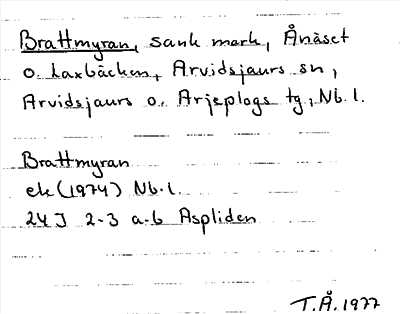 Brattmyran, sank mark, Ånäset
o. Laxbäcken, Arvidsjaurs sn,
Arvidsjaurs o. Arjeplogs tg, Nb. l.
Brattmyran
ek (1974) Nb. l.
24J 2-3 a-b Aspliden
T.Å. 1977